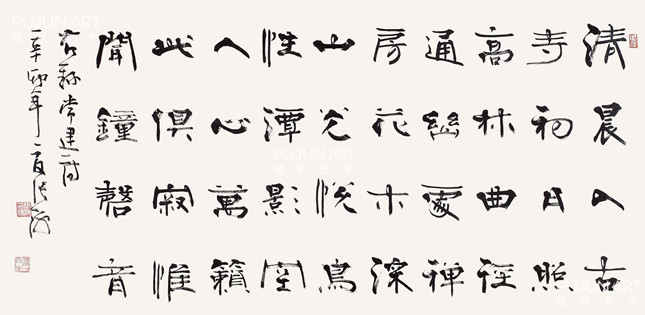 清晨入古
寺初日照
高林曲徑
通幽處禪
房花木深
山光悅鳥
性潭影空
人心萬籟
此俱寂惟
聞鐘磬音
右錄常建詩
辛卯年夏
PUJUN ART
PUJUN ART
PUJUN ART